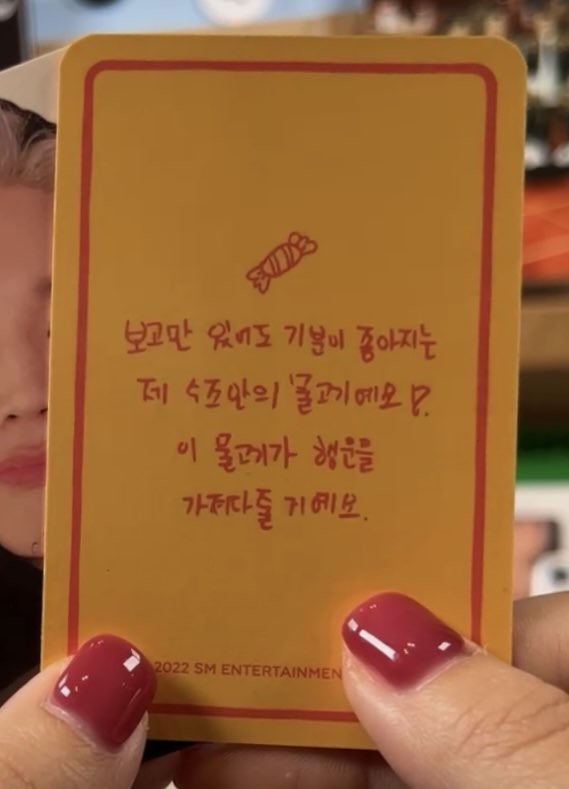 보고만 있어도 기분이 좋아지는
제 수조안의 물고기예요!?
이 물고기가 행운을
가져다줄 거예요.
2022 SM ENTERTAINMEN